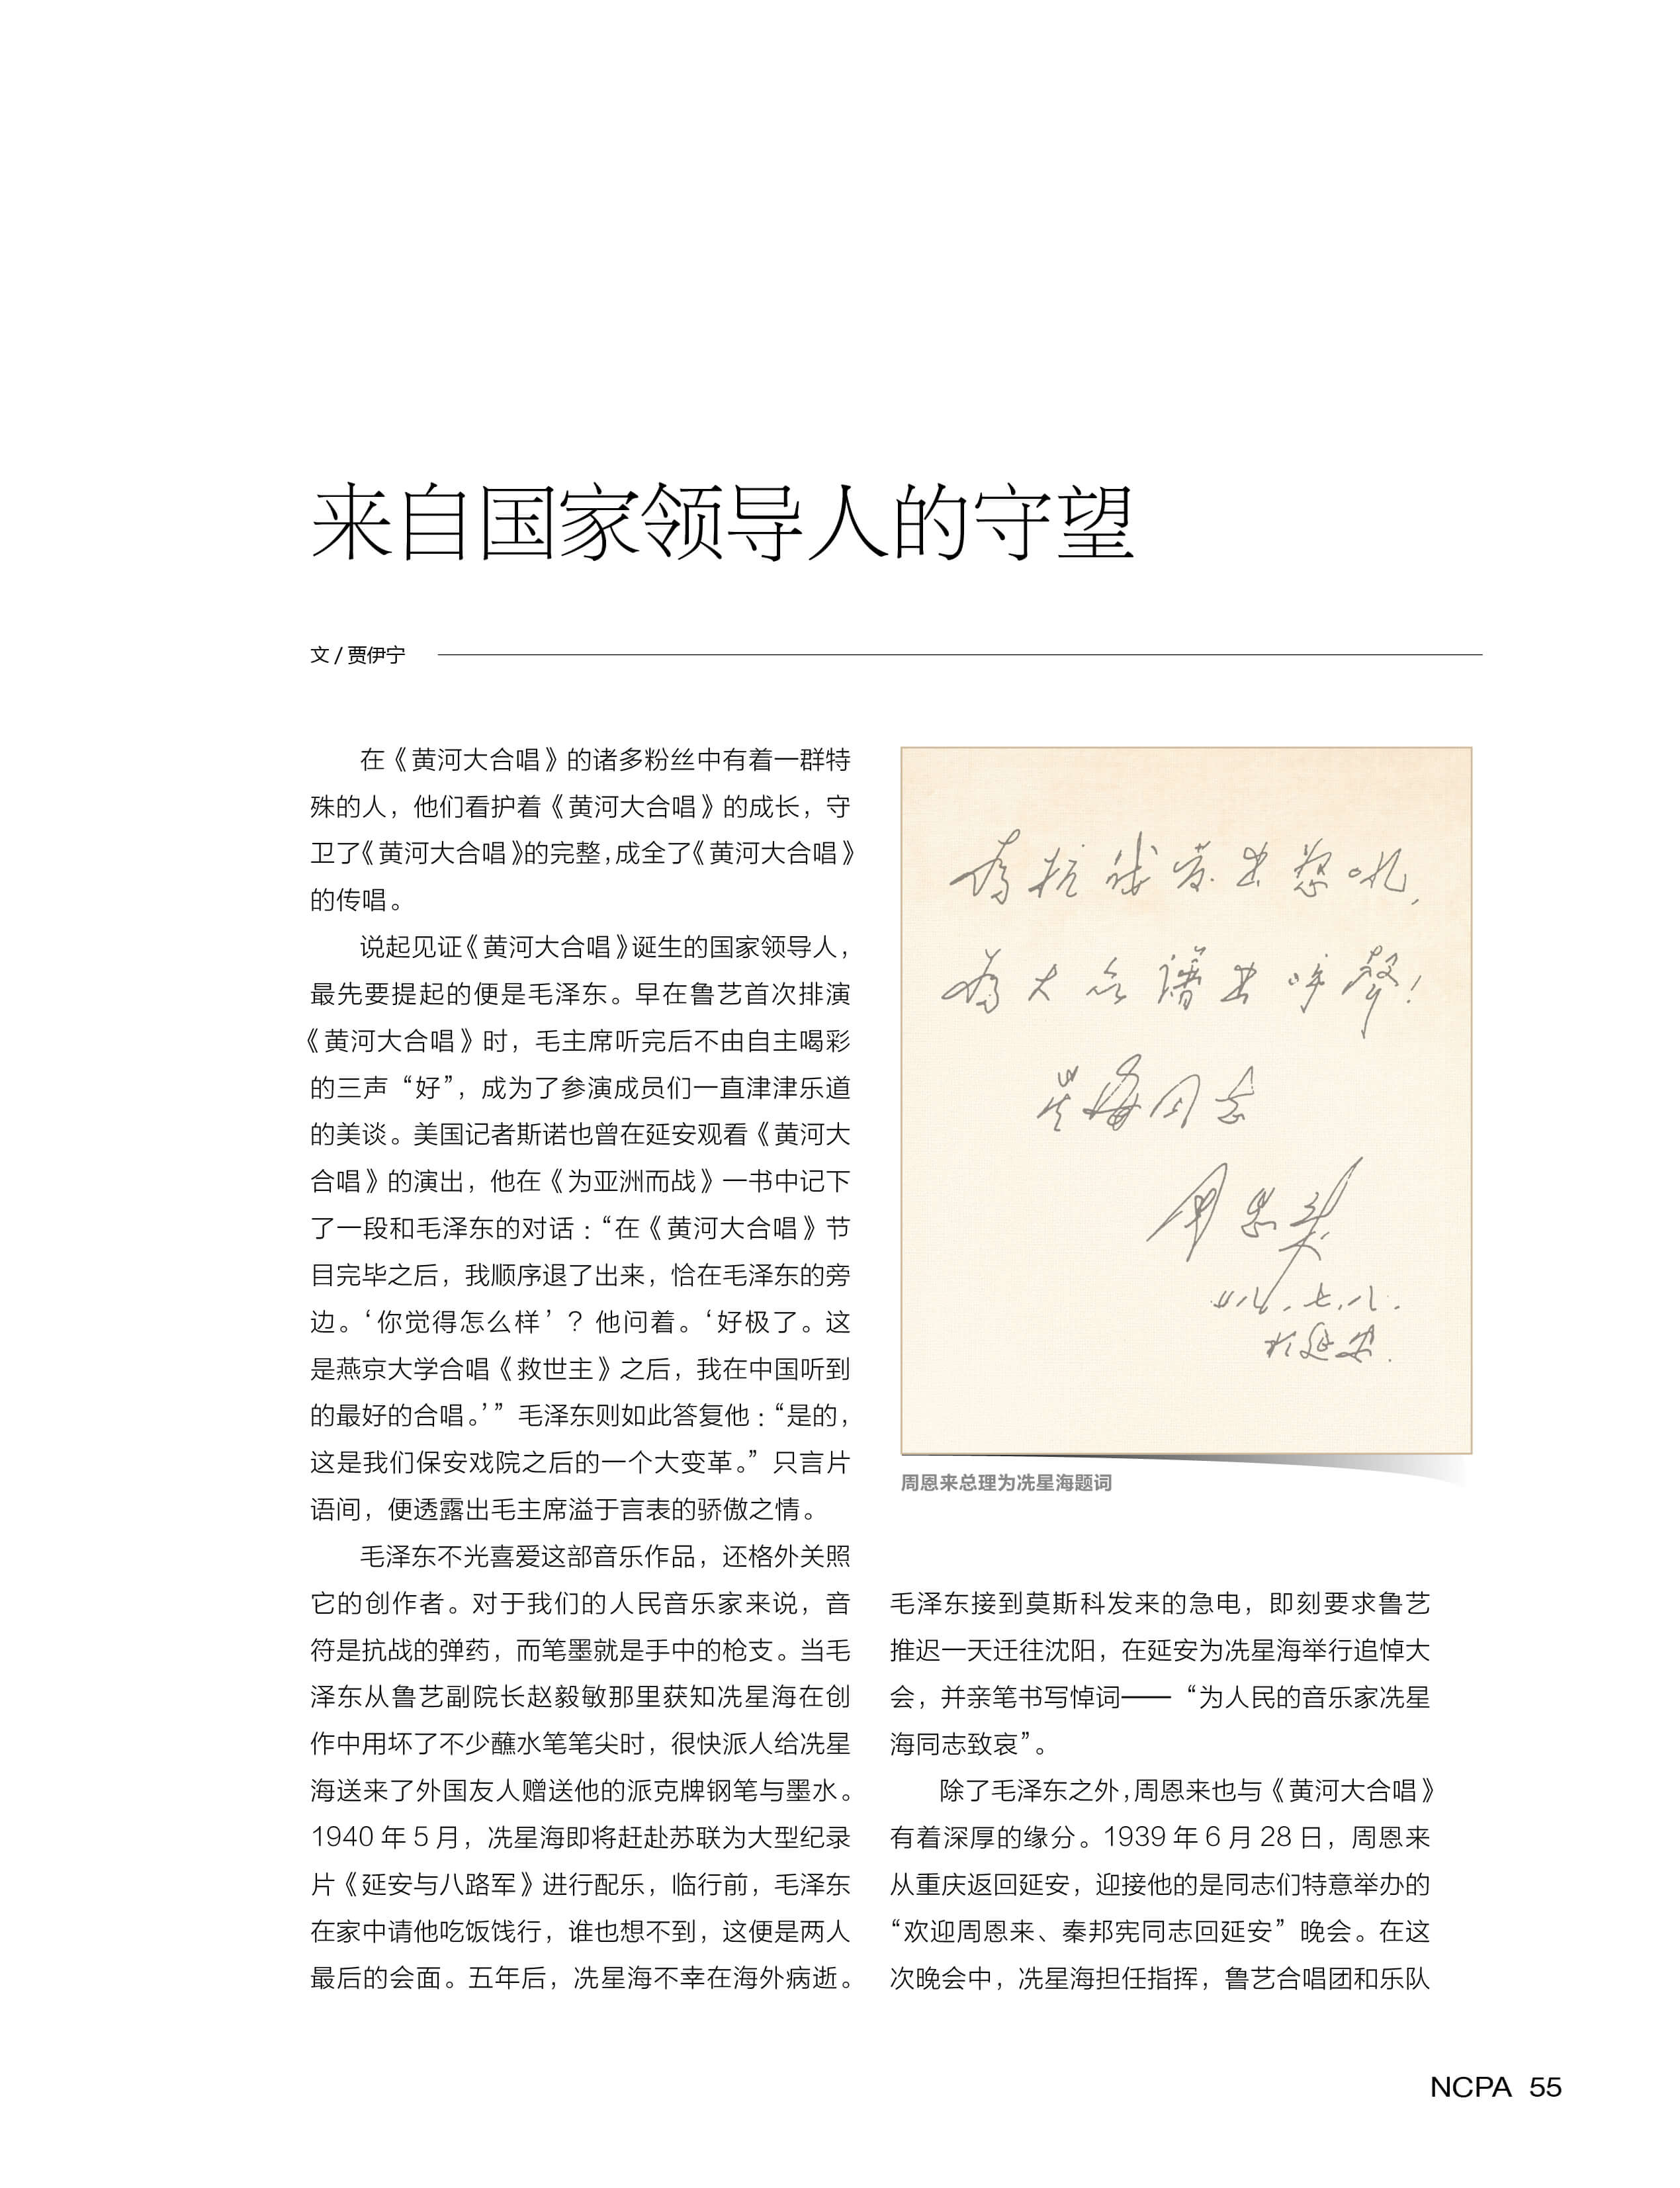 来自国家领导人的守望
文 / 贾伊宁
在《黄河大合唱》的诸多粉丝中有着一群特
殊的人，他们看护着《黄河大合唱》的成长，守
卫了《黄河大合唱》的完整，成全了《黄河大合唱》
的传唱。
说起见证《黄河大合唱》诞生的国家领导人，
最先要提起的便是毛泽东。早在鲁艺首次排演
《黄河大合唱》时，毛主席听完后不由自主喝彩
的三声“好”，成为了参演成员们一直津津乐道
的美谈。美国记者斯诺也曾在延安观看《黄河大
合唱》的演出，他在《为亚洲而战》一书中记下
了一段和毛泽东的对话：“在《黄河大合唱》节
目完毕之后，我顺序退了出来，恰在毛泽东的旁
边。‘你觉得怎么样’？他问着。‘好极了。这
是燕京大学合唱《救世主》之后，我在中国听到
的最好的合唱。’”毛泽东则如此答复他：“是的，
这是我们保安戏院之后的一个大变革。”只言片
语间，便透露出毛主席溢于言表的骄傲之情。
毛泽东不光喜爱这部音乐作品，还格外关照
它的创作者。对于我们的人民音乐家来说，音
符是抗战的弹药，而笔墨就是手中的枪支。当毛
泽东从鲁艺副院长赵毅敏那里获知冼星海在创
作中用坏了不少蘸水笔笔尖时，很快派人给冼星
海送来了外国友人赠送他的派克牌钢笔与墨水。
1940 年 5 月，冼星海即将赶赴苏联为大型纪录
片《延安与八路军》进行配乐，临行前，毛泽东
在家中请他吃饭饯行，谁也想不到，这便是两人
最后的会面。五年后，冼星海不幸在海外病逝。
为抗战发出怒吼，
为大众谱出呼声！
星海同志
周恩来
廿八，七，八．
于延安．
周恩来总理为冼星海题词
毛泽东接到莫斯科发来的急电，即刻要求鲁艺
推迟一天迁往沈阳，在延安为冼星海举行追悼大
会，并亲笔书写悼词——“为人民的音乐家冼星
海同志致哀”。
除了毛泽东之外，周恩来也与《黄河大合唱》
有着深厚的缘分。1939 年 6 月 28 日，周恩来
从重庆返回延安，迎接他的是同志们特意举办的
“欢迎周恩来、秦邦宪同志回延安”晚会。在这
次晚会中，冼星海担任指挥，鲁艺合唱团和乐队
NCPA 55